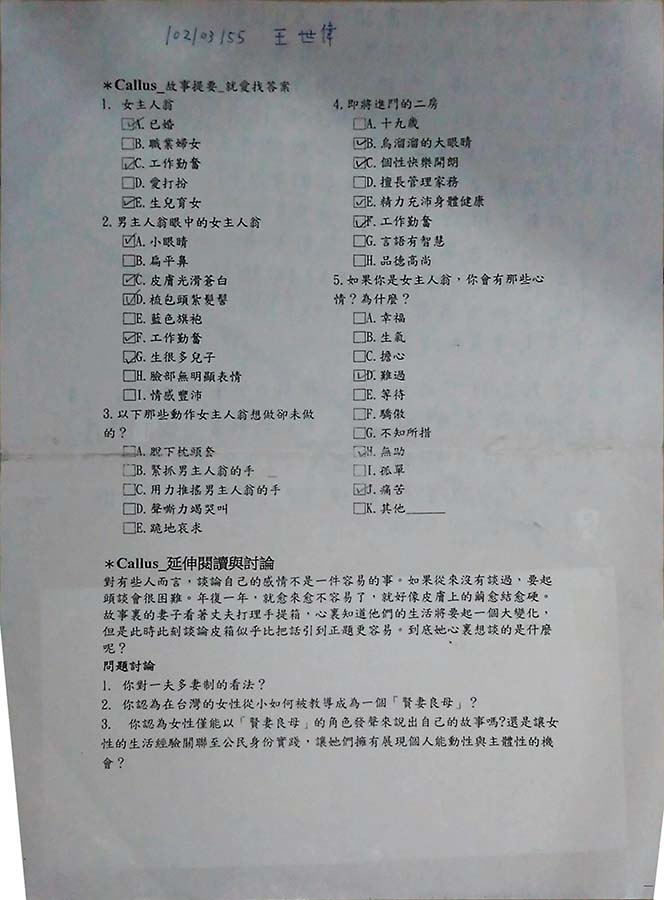 102103155 王世偉
＊Callus_故事提要_就愛找答案
1. 女主人翁
☑A. 已婚
☐B. 職業婦女
☑C. 工作勤奮
☐D. 愛打扮
☑E. 生兒育女
2. 男主人翁眼中的女主人翁
☑A. 小眼睛
☐B. 扁平鼻
☑C. 皮膚光滑蒼白
☑D. 梳包頭紮髮髻
☐E. 藍色旗袍
☑F. 工作勤奮
☑G. 生很多兒子
☐H. 臉部無明顯表情
☐I. 情感豐沛
3. 以下那些動作女主人翁想做卻未做
的？
☐A. 脫下枕頭套
☐B. 緊抓男主人翁的手
☐C. 用力推搖男主人翁的手
☐D. 聲嘶力竭哭叫
☐E. 跪地哀求
4. 即將進門的二房
☐A. 十九歲
☑B. 烏溜溜的大眼睛
☑C. 個性快樂開朗
☐D. 擅長管理家務
☑E. 精力充沛身體健康
☑F. 工作勤奮
☐G. 言語有智慧
☐H. 品德高尚
5. 如果你是女主人翁，你會有那些心
情？為什麼？
☐A. 幸福
☐B. 生氣
☐C. 擔心
☑D. 難過
☐E. 等待
☐F. 驕傲
☐G. 不知所措
☑H. 無助
☐I. 孤單
☑J. 痛苦
☐K. 其他______
＊Callus_延伸閱讀與討論
對有些人而言，談論自己的感情不是一件容易的事。如果從來沒有談過，要起
頭談會很困難。年復一年，就愈來愈不容易了，就好像皮膚上的繭愈結愈硬。
故事裏的妻子看著丈夫打理手提箱，心裏知道他們的生活將要起一個大變化，
但是此時此刻談論皮箱似乎比把話引到正題更容易。到底她心裏想談的是什麼
呢？
問題討論
1. 你對一夫多妻制的看法？
2. 你認為在台灣的女性從小如何被教導成為一個「賢妻良母」？
3. 你認為女性僅能以「賢妻良母」的角色發聲來說出自己的故事嗎?還是讓女
性的生活經驗關聯至公民身份實踐，讓她們擁有展現個人能動性與主體性的機
會？